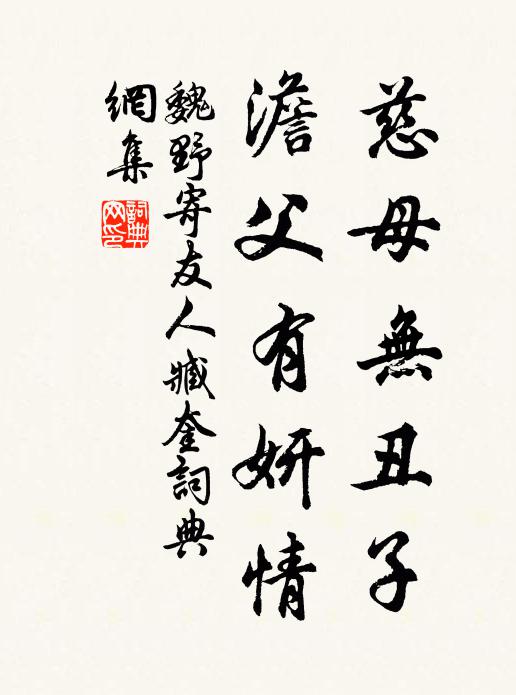 慈母無丑子
澹父有妍情
魏野寄友人臧奎詞典
網集
詞典
网印